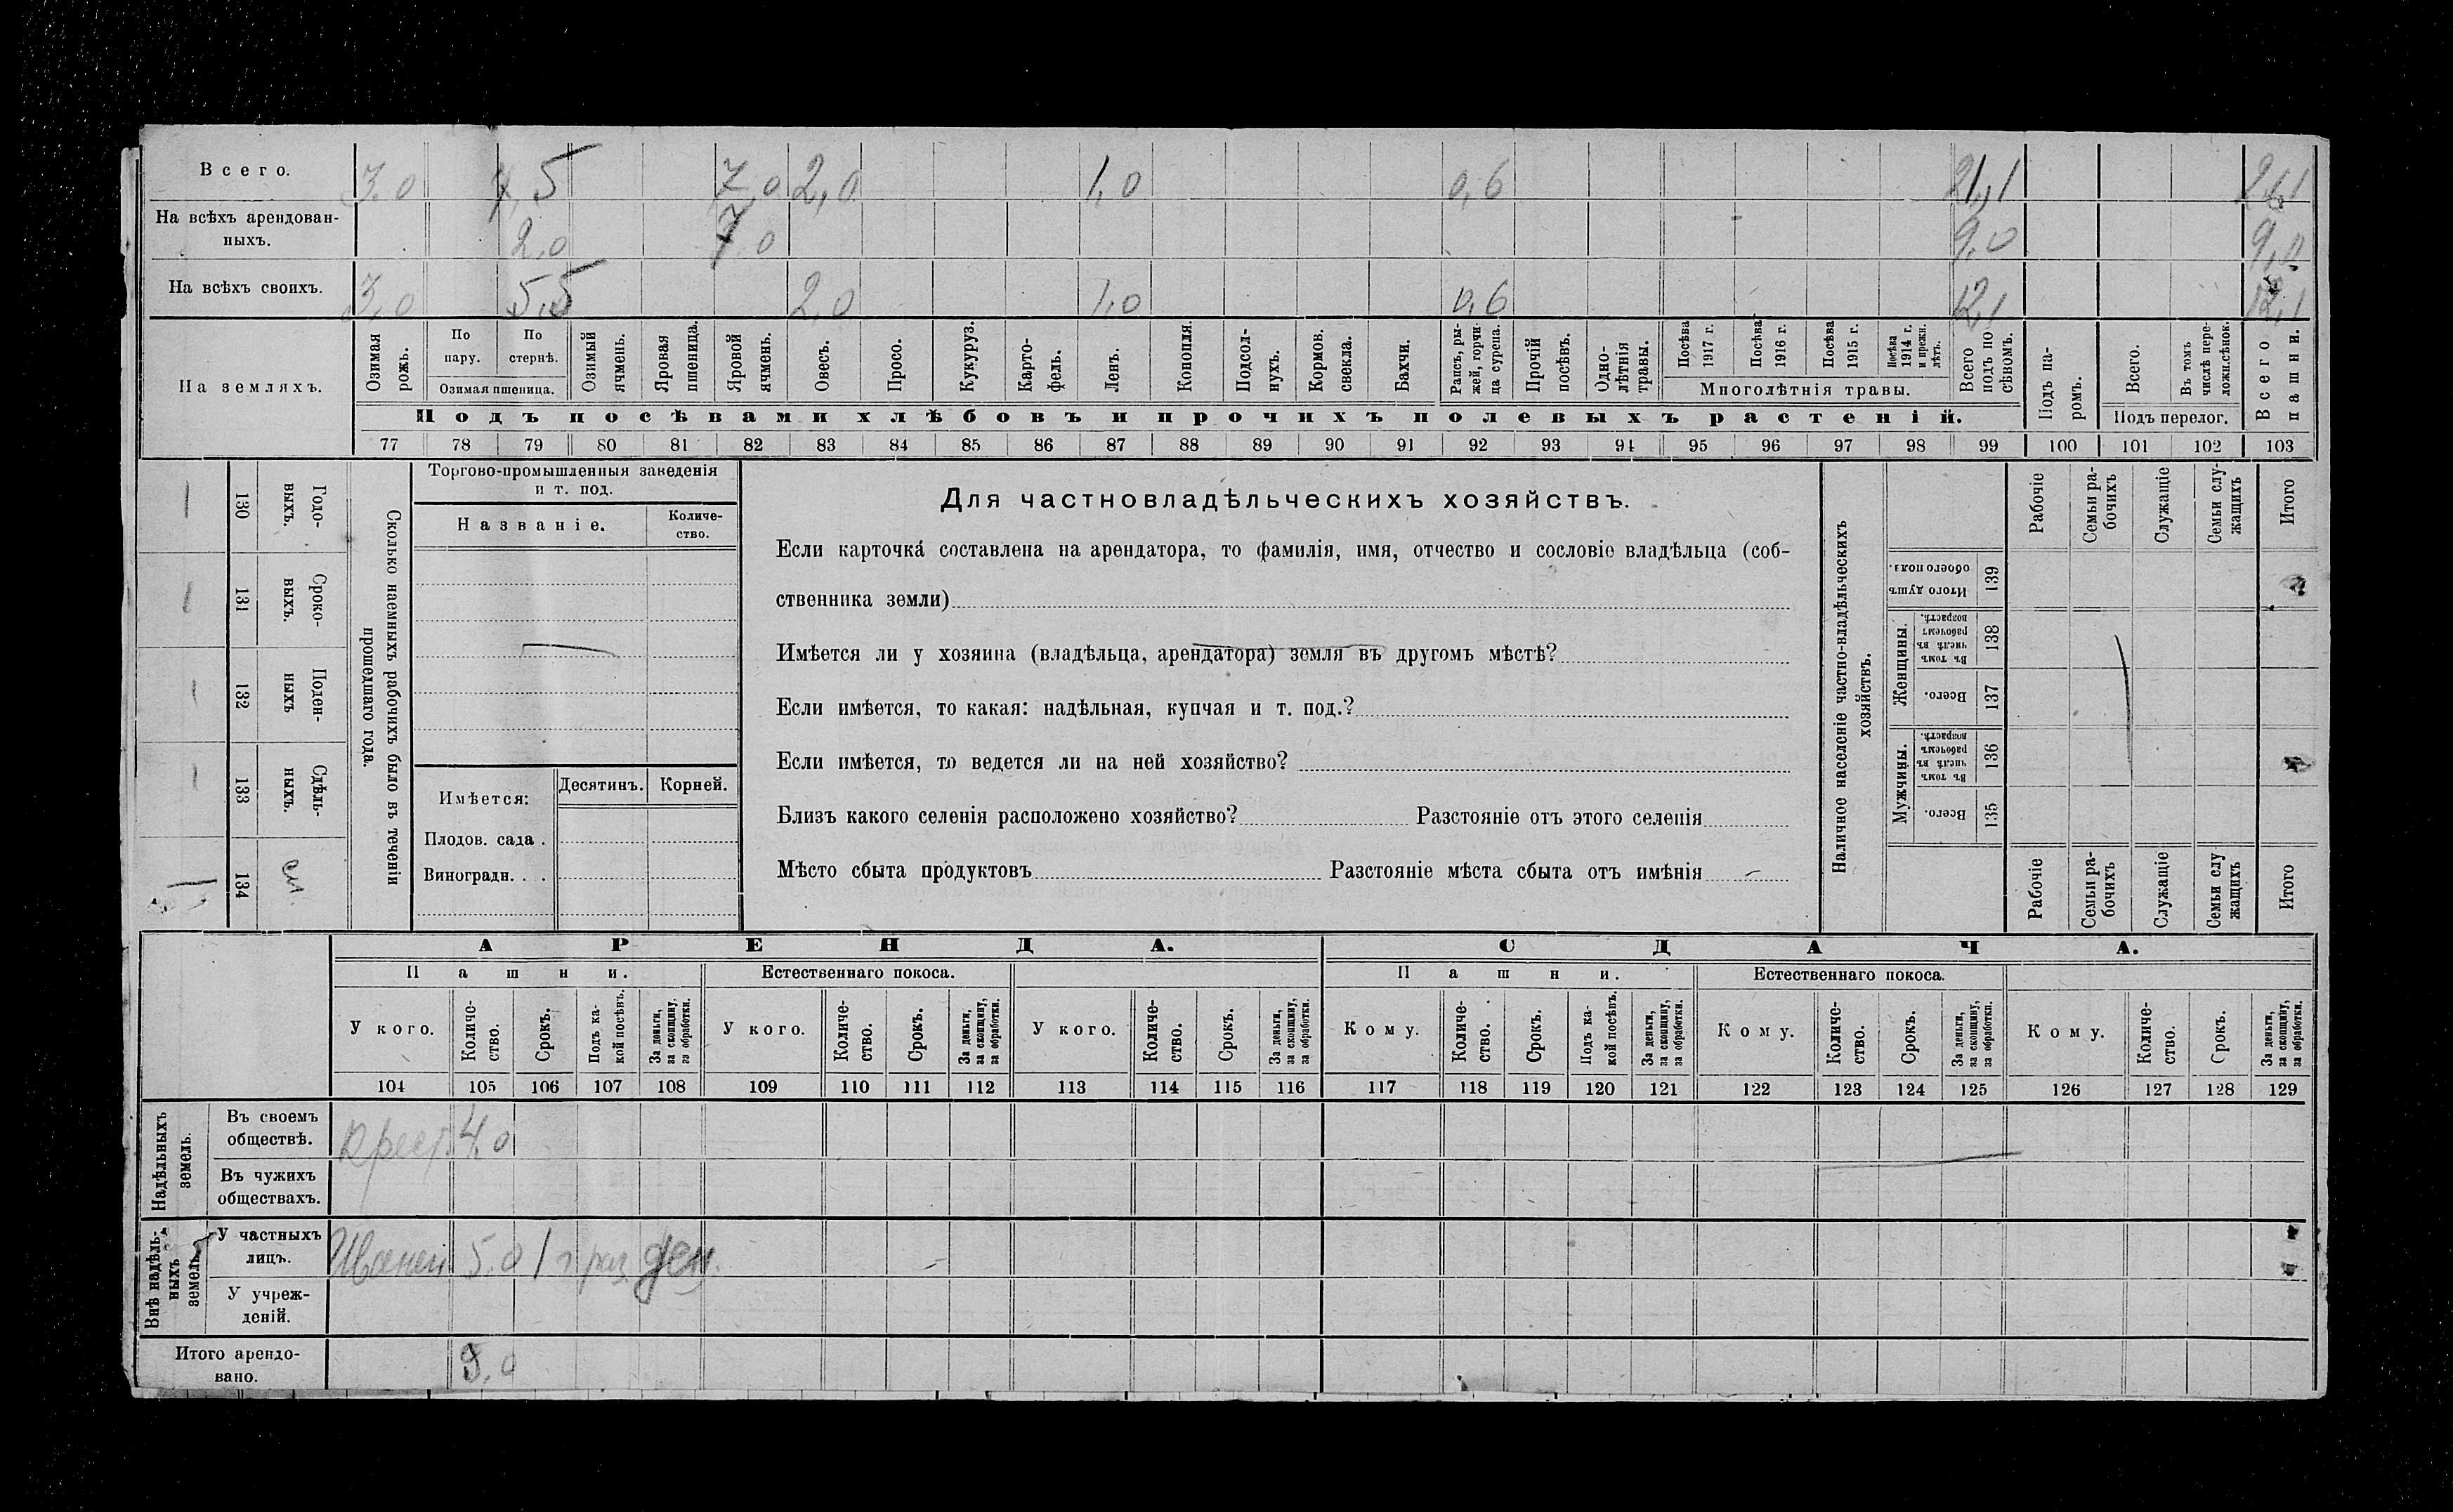 Всего. 3.0 7,5 7,0 2,0 1,0 0,6 21,1 21,1
На всѣхъ арендован-
ныхъ. 2,0 7,0 9,0 9,0
На всѣхъ своихъ. 3,0 5,5 2,0 1,0 0,6 12,1 12,1
На земляхъ.
Озимая рожь.
По пару.
По стернѣ.
Озимая пшеница.
Озимый ячмень.
Яровая пшеница.
Яровой ячмень.
Овесъ.
Просо.
Кукуруз.
Карто-
фель.
Ленъ.
Конопля.
Подсол-
нухъ.
Кормов.
свекла.
Бахчи.
Рапсъ, ры-
жей, горчи-
ца сурепа.
Прочій
посѣвъ.
Одно-
лѣтнія
травы.
Посѣва
1917 г.
Посѣва
1916 г.
Посѣва
1915 г.
Посѣва
1914 г.
и прежн.
лѣтъ.
Многолѣтнія травы.
Всего
подъ по
сѣвомъ.
Подъ па-
ромъ.
Всего.
Въ томъ
числѣ пере-
ложн.сѣнок.
Подъ перелог.
Всего
пашни.
Подъ посѣвами хлѣбовъ и прочихъ полевыхъ растеній.
77 78 79 80 81 82 83 84 85 86 87 88 89 90 91 92 93 94 95 96 97 98 99 100 101 102 103
Годо-
выхъ.
130
Сроко-
выхъ.
131
Поден-
ныхъ
132
Сдѣль-
ныхъ.
133
134
Сколько наемныхъ рабочихъ было въ теченіи
прошедшаго года.
Торгово-промышленныя заведенія
и т. под.
Названіе.
Количе-
ство.
Имѣется:
Десятинъ.
Корней.
Плодов. сада .
Виноградн. . .
Для частновладѣльческихъ хозяйствъ.
Если карточка составлена на арендатора, то фамилія, имя, отчество и сословіе владѣльца (соб-
ственника земли)
Имѣется ли у хозяина (владѣльца, арендатора) земля въ другомъ мѣстѣ?
Если имѣется, то какая: надѣльная, купчая и т. под.?
Если имѣется, то ведется ли на ней хозяйство?
Близъ какого селенія расположено хозяйство? Разстояніе отъ этого селенія
Мѣсто сбыта продуктовъ Разстояніе мѣста сбыта отъ имѣнія
Наличное населеніе частно-владѣльческихъ
хозяйствъ.
Рабочіе
Семьи ра-
бочихъ
Служащіе
Семьи слу-
жащихъ
Итого
Итого душъ
обоего пола.
139
Женщины.
Въ томъ
числѣ въ
рабочемъ
возрастѣ.
138
Всего.
137
Мужчины.
Въ томъ
числѣ въ
рабочемъ
возрастѣ.
136
Всего.
135
Рабочіе
Семьи ра-
бочихъ
Служащіе
Семьи слу
жащихъ
Итого
АРЕНДА. СДАЧА.
Пашни. Естественнаго покоса. Пашни. Естественнаго покоса.
У кого.
Количе-
ство.
Срокъ.
Подъ ка-
кой посѣвъ.
За деньги,
за скопщину,
за обработки.
У кого.
Количе-
ство.
Срокъ.
За деньги,
за скопщину,
за обработки.
У кого.
Количе-
ство.
Срокъ.
За деньги,
за скопщину,
за обработки.
Кому.
Количе-
ство.
Срокъ.
Подъ ка-
кой посѣвъ.
За деньги,
за скопщину,
за обработки.
Кому.
Количе-
ство.
Срокъ.
За деньги,
за скопщину,
за обработки.
Кому.
Количе-
ство.
Срокъ.
За деньги,
за скопщину,
за обработки.
104 105 106 107 108 109 110 111 112 113 114 115 116 117 118 119 120 121 122 123 124 125 126 127 128 129
Надѣльныхъ
земель.
Въ своемъ
обществѣ. Крест. 4,0
Въ чужихъ
обществахъ.
Внѣ надѣль-
ныхъ
земель.
У частныхъ
лицъ. 5.0 1 г. раз. ден.
У учреж-
деній.
Итого арендо-
вано. 9,0